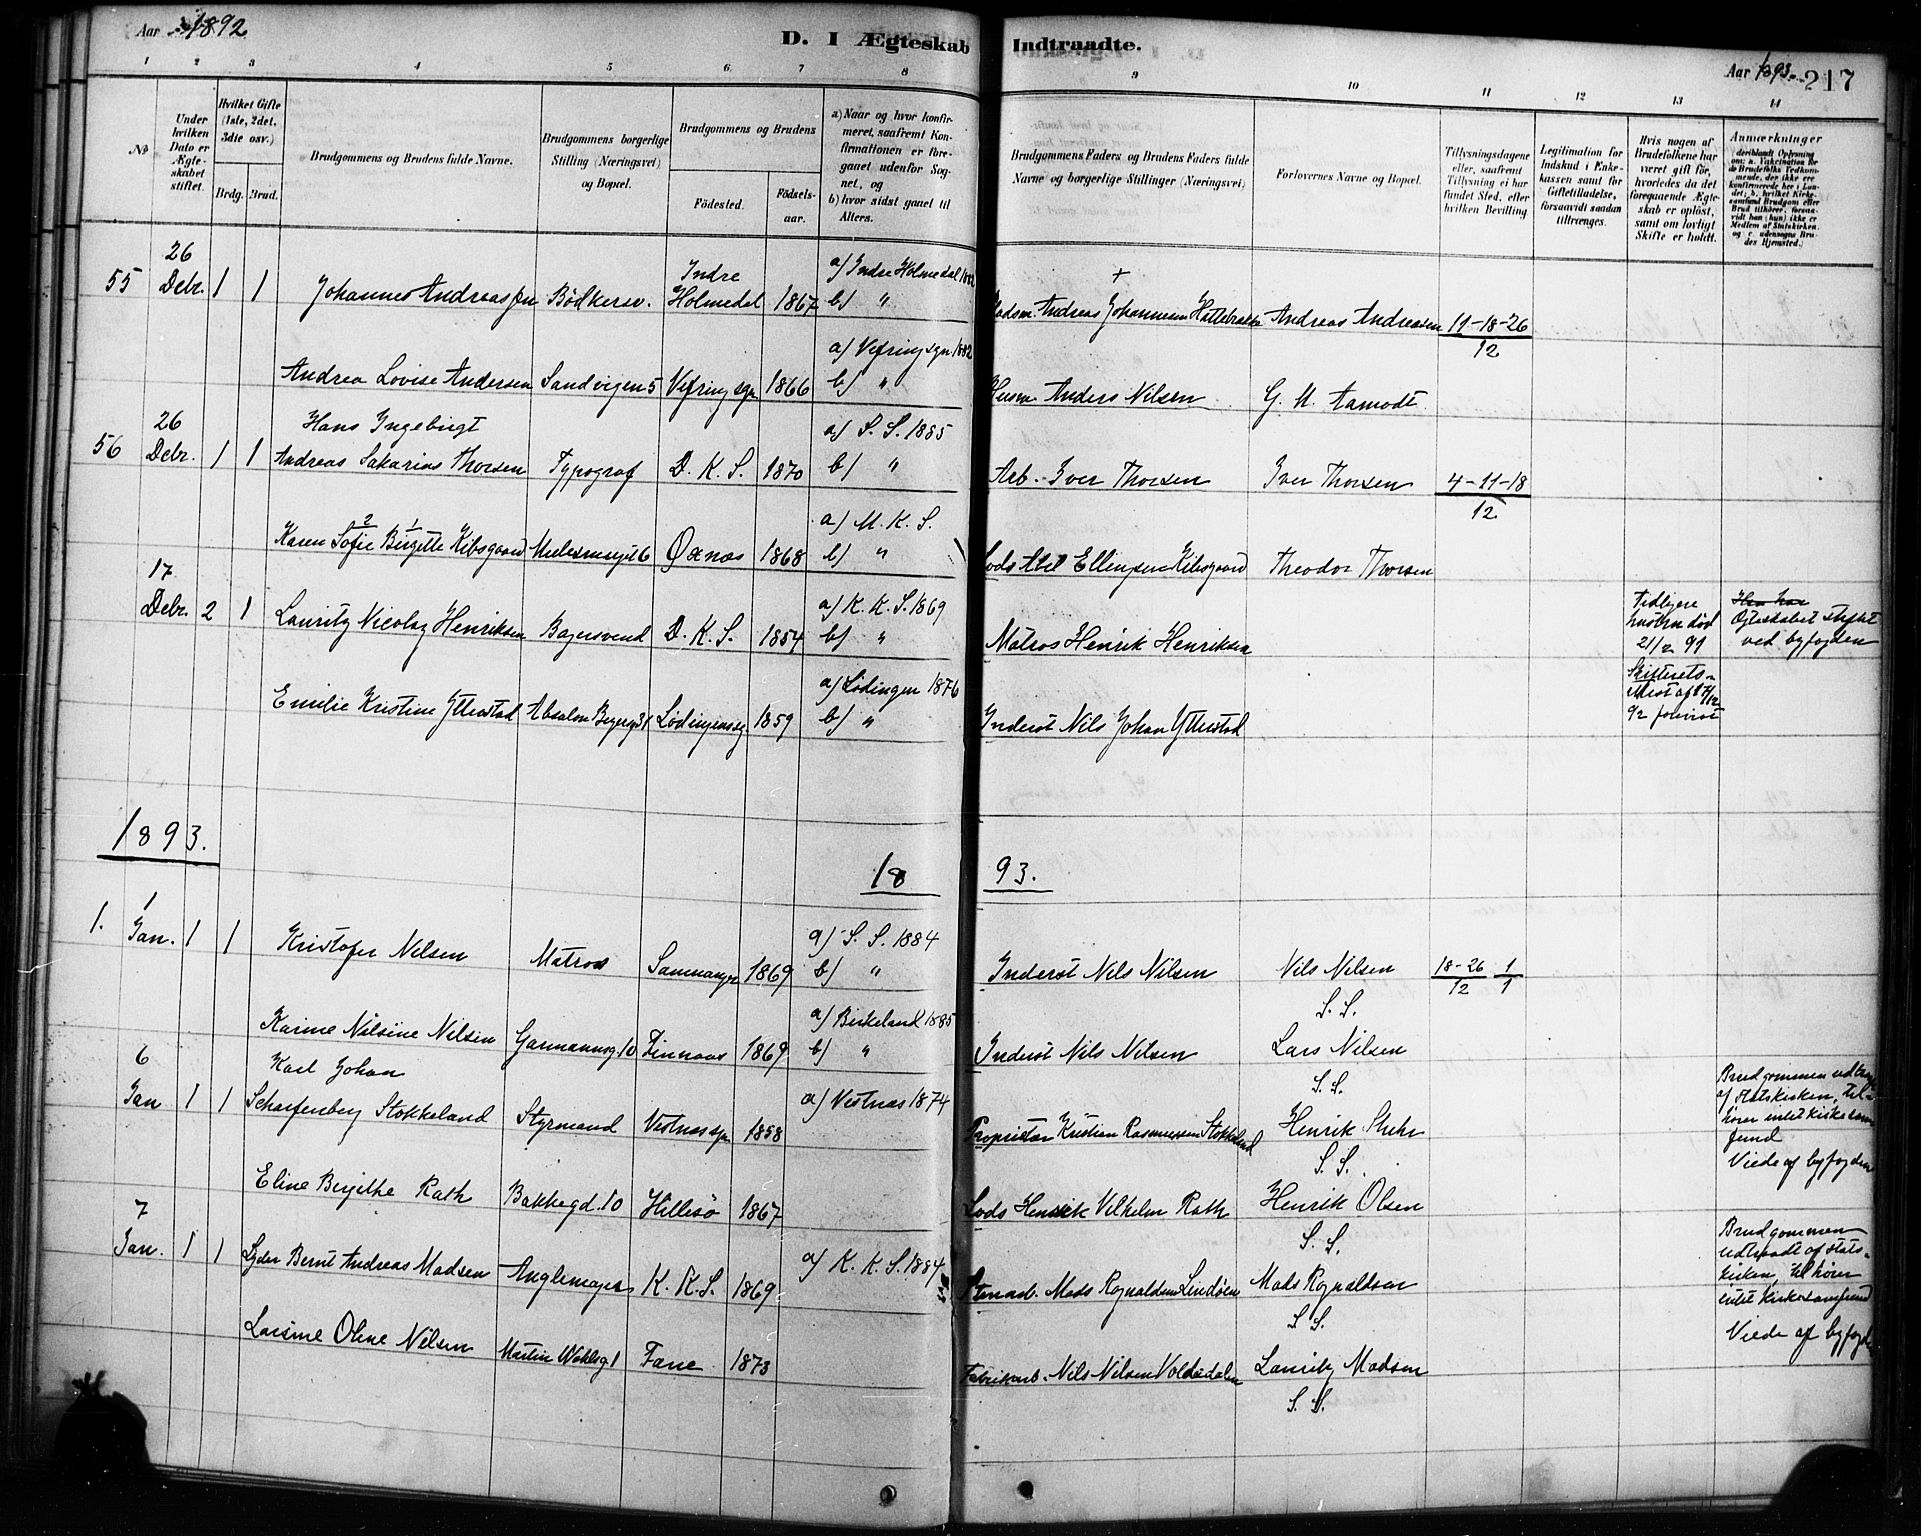 Aar 1892
D. I Ægteskab Indtraadte.
Aar 1893. 217
1 2 3 4 5 6 7 8 9 10 11 12 13 14
No
Under hvilken Dato er Ægteskabet stiftet.
Hvilket Gifte (1ste, 2det, 3dte osv.)
Brdg. Brud.
Brudgommens og Brudens fulde Navne.
Brudgommens borgerlige Stilling (Næringsvei) og Bopæl.
Brudgommens og Brudens
Fødested.
Fødselsaar.
a) Naar og hvor konfirmeret, saafremt Konfirmationen er foregaaet udenfor Sognet, og
b) hvor sidst gaaet til Alters.
Brudgommens Faders og Brudens Faders fulde Navne og borgerlige Stillinger (Næringsvei)
Forlovernes Navne og Bopæl.
Tillysningsdagene eller, saafremt Tillysning ei har fundet Sted, efter hvilken Bevilling
Legitimation for Indskud i Enkekassen samt for Giftetilladelse, forsaavidt saadan tiltrænges.
Hvis nogen af Brudefolkene har været gift før, hvorledes da det foregaaende Ægteskab er opløst, samt om lovligt Skifte er holdt.
Anmærkninger
55 26 Debr. 1 1 Johannes Andreassen Bödkersv. Indre Holmedal 1867 a) Indre Holmedal 1882 b) "
+ Andreas Johannesen Andreas Andreasen 11-18-26 12
Andrea Lovise Andersen Sandvigen 5 Vefring sgn 1866 a) Vefring sgn 1882 b) "
Husm Anders Nilsen G. M. Aamodt
56 26 Debr. 1 1 Hans Ingebrigt Andreas Sakarias Thorsen Typograf D. K. S. 1870 a) S. S. 1885 b) "
Arb. Iver Thorsen Iver Thorsen 4-11-18 12
Karen Sofie Birgitte Kibsgaard Øxnæs 1868 a) M. K. S. b) "
Lods Abel Ellingsen Kibsgaard Theodor Thorsen
17 Debr. 2 1 Lauritz Nicolay Henriksen Bagersvend D. K. S. 1854 a) K. K. S. 1869 b) "
Matros Henrik Henriksen
Tidligere hustru död 21/2 91
Skifterets attest af 17/12 92 forevist
Ægteskabet stiftet ved byfogden
Emilie Kristine Ytterstad Absalon Beyersg 31 1859 a) Lödingen 1876 b) "
Inderst Nils Johan Ytterstad
1893.
18 93.
1. 1 Jan. 1 1 Kristofer Nilsen Matros Samnanger 1869 a) S. S. 1884 b) "
Inderst Nils Nilsen Nils Nilsen S. S. 18-26 12 1 1
Karine Nilsine Nilsen Garmannsg 10 Finnaas 1869 a) Birkeland 1885 b) "
Inderst Nils Nilsen Lars Nilsen S. S.
6 Jan 1 1 Karl Johan Scharfenberg Stokkeland Styrmand Vestnæs sgn 1858 a) Vestnæs 1874
Proprietær Kristian Rasmussen Stokkeland Henrik S. S.
Brudgommen udtraadt af Statskirken, tilhører intet kirkesamfund
Viede af byfogden
Eline Birgithe Rath Bakkegd. 10 Hillesö 1867
Lods Henrik Vilhelm Rath Henrik Olsen S. S.
7 Jan. 1 1 Lyder Bernt Andreas Madsen Anglemager K. K. S. 1869 a) K. K. S. 1884
Stenarb. Mads Rognaldsen Lindöen Mads Rognaldsen S. S.
Brudgommen udtraadt af Statskirken, tilhører intet kirkesamfund
Viede af byfogden
Larsine Oline Nilsen Martin Vahlsg 1 Fane 1873
Fabrikarb. Nils Nilsen Voldedalen Lauritz Madsen S. S.